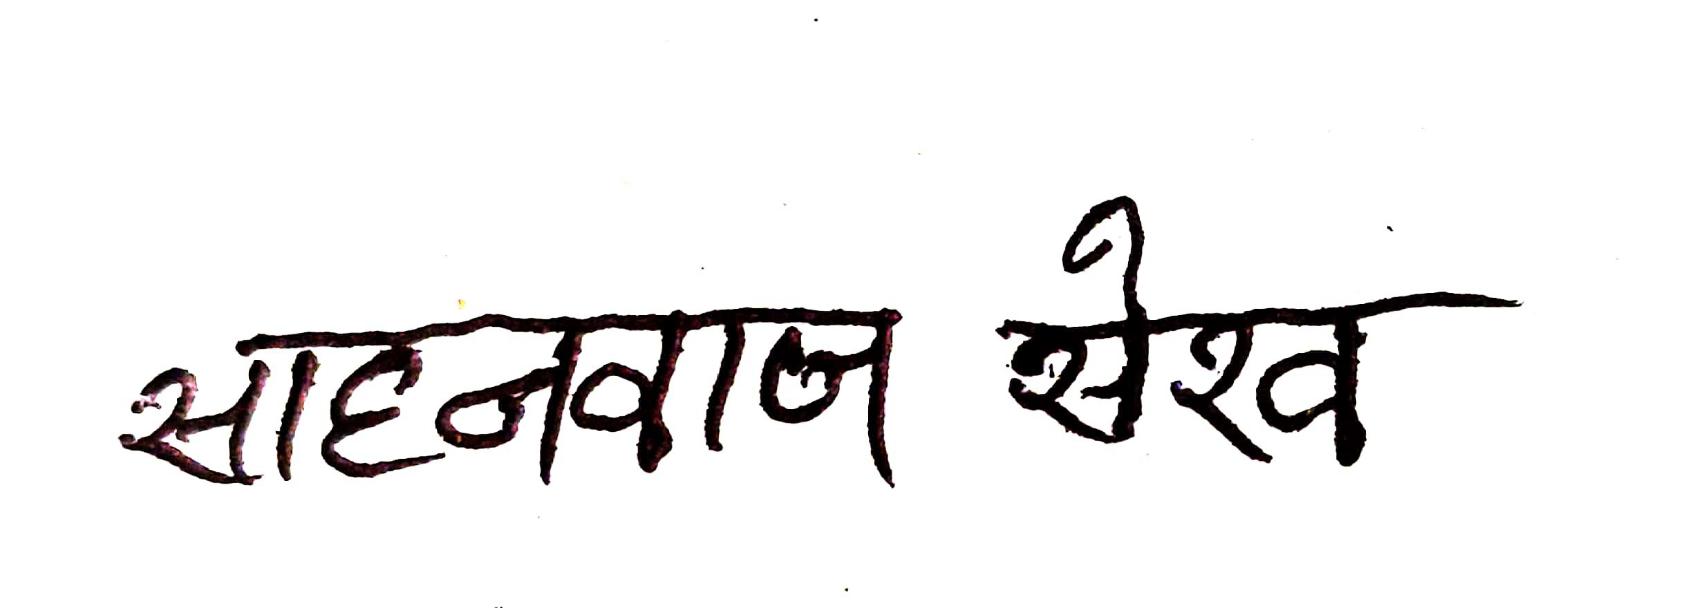 साहनवाज सेख